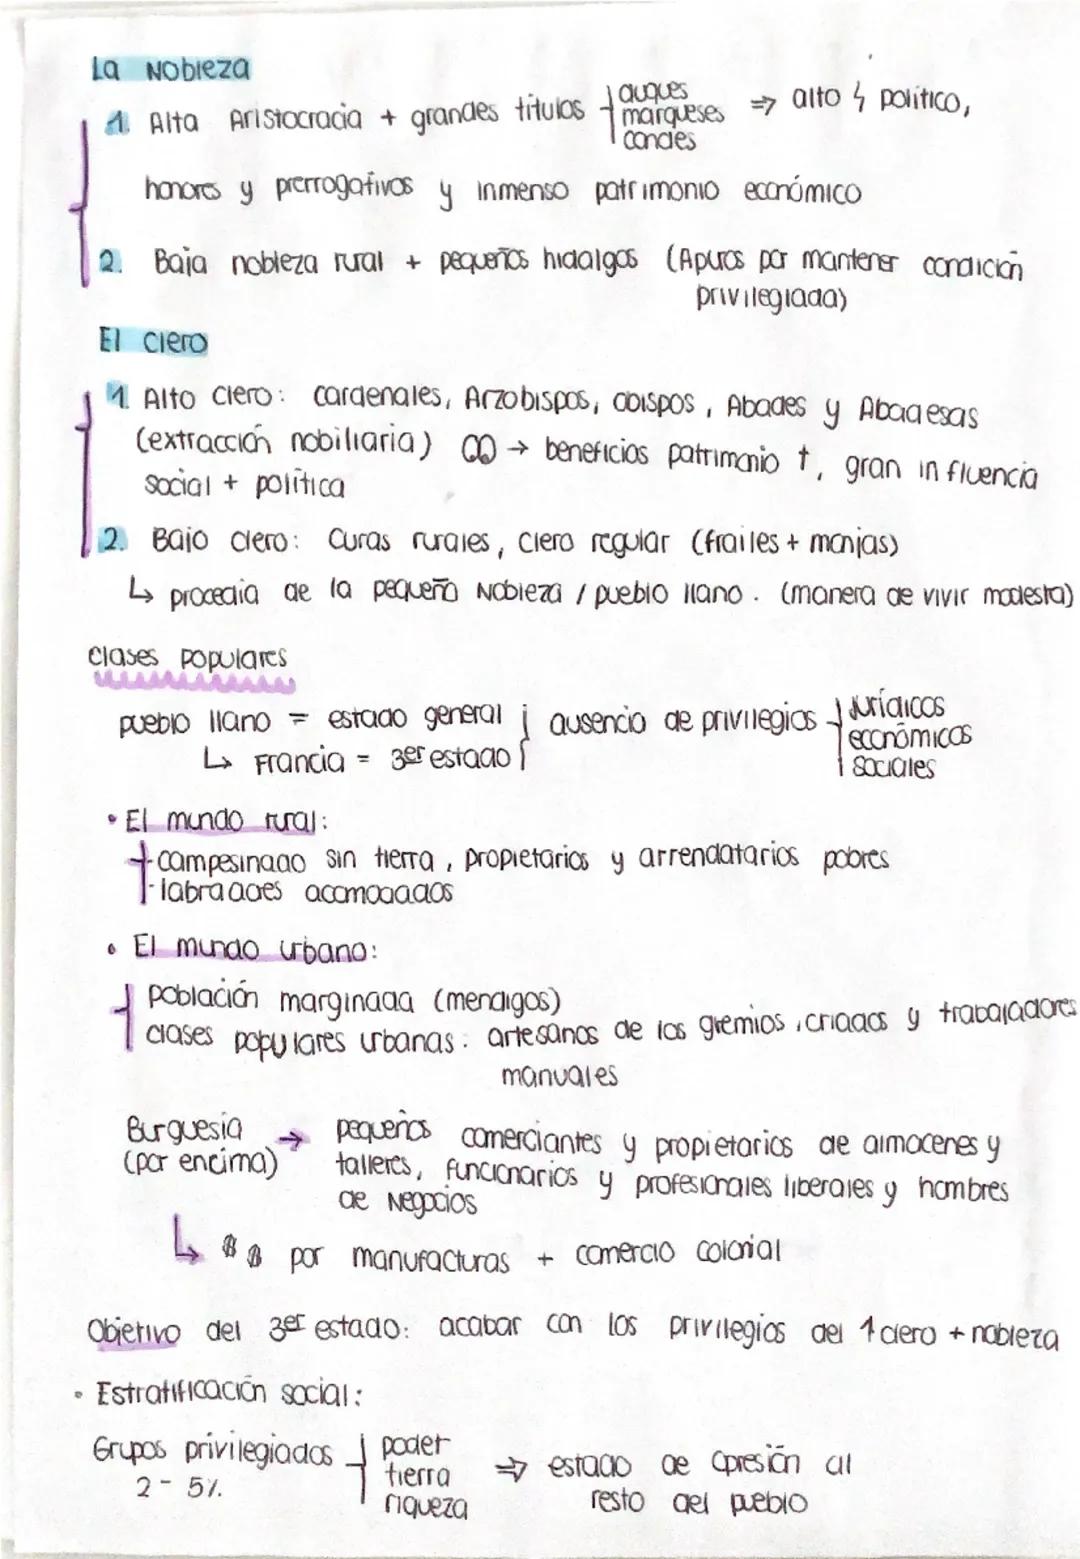 La Nobleza
1. Alta Aristocracia + grandes títulos duques
marqueses
condes
⇒ alto ϟ político,
honores y prerrogativas y inmenso patrimonio económico
2. Baja nobleza rural + pequeños hidalgos (Apuros por mantener condición
privilegiada)
El clero
1. Alto Clero: cardenales, Arzobispos, obispos, Abades y Abadesas
(extracción nobiliaria) → beneficios patrimonio ↑, gran influencia
social + política
2. Bajo clero: Curas rurales, clero regular (frailes + monjas)
↳ procedía de la pequeña Nobleza / pueblo llano. (manera de vivir modesta)
Clases populares
pueblo llano = estado general
↳ Francia = 3er estado
ausencia de privilegios
jurídicos
económicos
sociales
• El mundo rural:
- campesinado sin tierra, propietarios y arrendatarios pobres
- labradaes acomodados
• El mundo urbano:
población marginada (mendigos)
clases populares urbanas: artesanos de los gremios, criados y trabajadores
manuales
Burguesía → pequeños comerciantes y propietarios de almacenes y
(por encima) talleres, funcionarios y profesionales liberales y hombres
de Negocios
↳ $ $ por manufacturas + comercio colonial
Objetivo del 3er estado: acabar con los privilegios del 1 clero + nobleza
• Estratificación social:
Grupos privilegiados
2 - 5%
poder
tierra
riqueza
⇒ estado de opresión al
resto del pueblo